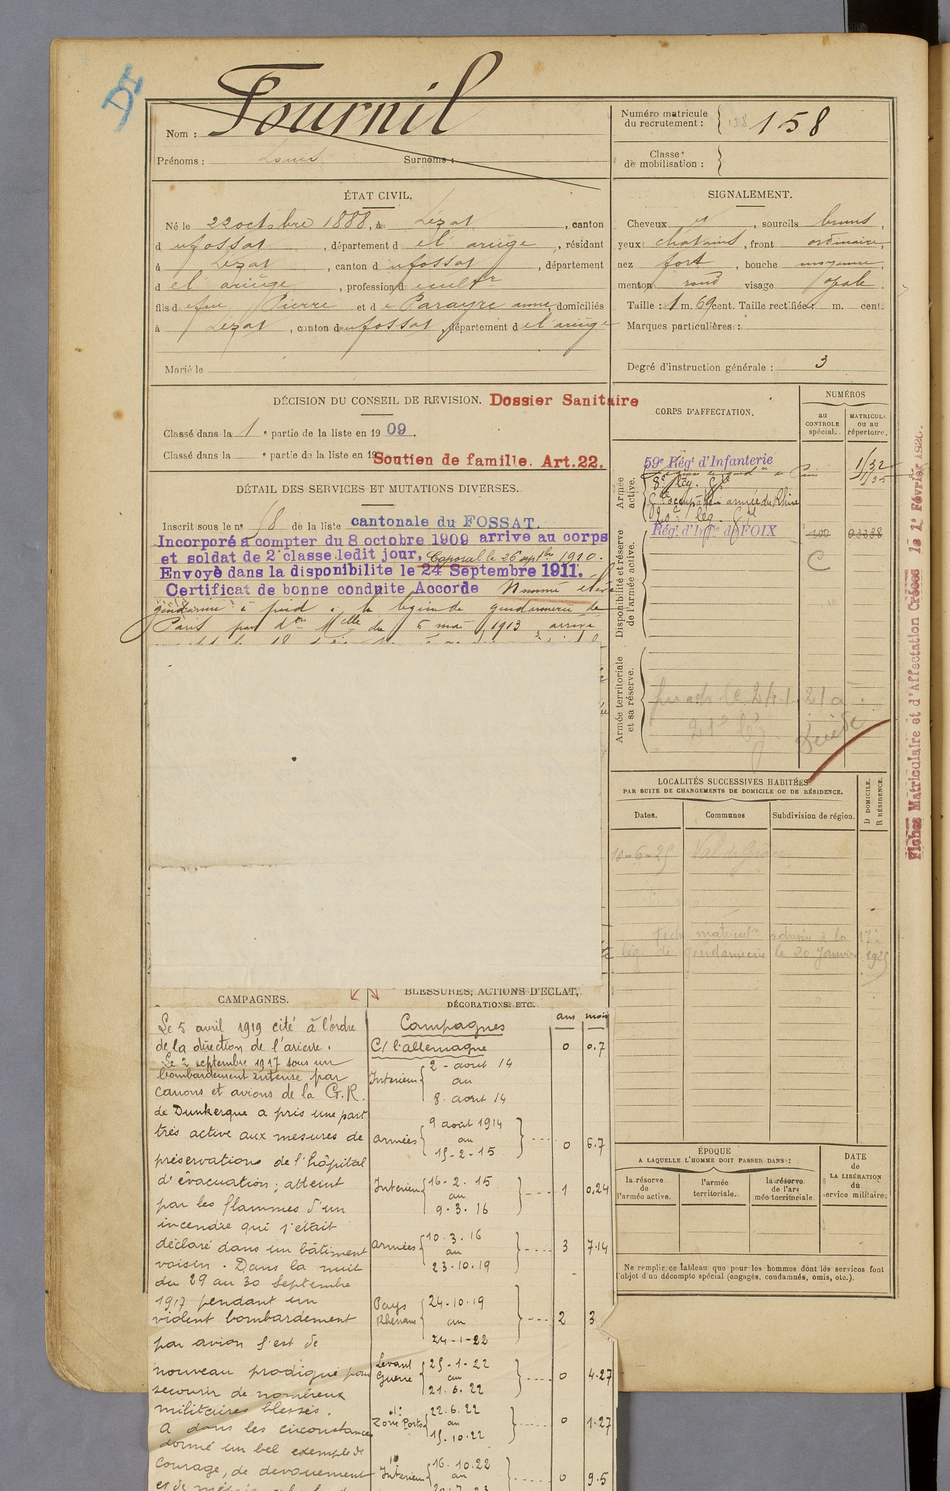 Fournil
Nom :
Prénoms : Louis Surnoms :
Numéro matricule
du recrutement : 158
Classe
de mobilisation :
ÉTAT CIVIL.
Né le 22 octobre 1888, à Lézat, canton
du Fossat, département de l'ariège, résidant
à Lézat, canton du Fossat, département
de l'ariège, profession de cultr
fils de feu Pierre et de Parayre anne, domiciliés
à Lézat, canton du Fossat, département de l'ariège
Marié le
SIGNALEMENT.
Cheveux, sourcils bruns,
yeux chatains, front ordinaire,
nez fort, bouche moyenne,
menton rond visage ovale.
Taille : 1 m. 69 cent. Taille rectifiée : m. cent.
Marques particulières :
Degré d'instruction générale : 3
DÉCISION DU CONSEIL DE REVISION. Dossier Sanitaire
Classé dans la 1e partie de la liste en 1909.
Classé dans la e partie de la liste en 19
Soutien de famille. Art.22.
DÉTAIL DES SERVICES ET MUTATIONS DIVERSES.
Inscrit sous le n° 18 de la liste cantonale du FOSSAT.
Incorporé à compter du 8 octobre 1909 arrive au corps
et soldat de 2e classe ledit jour, Caporal le 26 septbre 1910.
Envoyé dans la disponibilite le 24 Septembre 1911.
Certificat de bonne conduite Accorde Nommé élève
gendarme à pied à la légion de gendarmerie de
Paris par don Mlle du 6 mai 1913 arrivé
CORPS D'AFFECTATION.
NUMÉROS
au
CONTROLE
spécial.
MATRICULE
ou au
répertoire.
Armée
active.
59e Régt d'Infanterie 1/32
Gie occupation armée du Rhin
Disponibilité et réserve
de l'armée active.
Régt d'Inffie de FOIX
C
Armée territoriale
et sa réserve.
Fiches Matriculaire et d'Affectation Créées le 1er Février 1920.
LOCALITÉS SUCCESSIVES HABITÉES
PAR SUITE DE CHANGEMENTS DE DOMICILE OU DE RÉSIDENCE.
Dates.
Communes
Subdivision de région.
D DOMICILE.
R RÉSIDENCE.
10-6-25
adressé à la 17e
lég. de gendarmerie le 20 Janvier 1925
ÉPOQUE
A LAQUELLE L'HOMME DOIT PASSER DANS :
la réserve
de
l'armée active.
l'armée
territoriale.
la réserve
de l'armée territoriale.
DATE
de
LA LIBÉRATION
du
service militaire.
Ne remplir ce tableau que pour les hommes dont les services font
l'objet d'un décompte spécial (engagés, condamnés, omis, etc.).
CAMPAGNES.
Le 5 avril 1919 cité à l'ordre
de la direction de l'arrière.
Le 2 septembre 1917 sous un
bombardement intense par
canons et avions de la G.R.
de Dunkerque a pris une part
très active aux mesures de
préservations de l'hôpital
d'évacuation ; atteint
par les flammes d'un
incendie qui s'était
déclaré dans un bâtiment
voisin. Dans la nuit
du 29 au 30 septembre
1917 pendant un
violent bombardement
par avion s'est de
nouveau prodigué pour
secourir de nombreux
militaires blessés.
A dans les circonstances
donné un bel exemple de
courage, de dévouement
BLESSURES, ACTIONS D'ÉCLAT,
DÉCORATIONS, ETC.
Campagnes ans mois
C/ l'allemagne 0 0.7
Intérieur 2 - août 14
au
8. août 14
Armées 9 août 1914
au
15-2-15 0 6.7
Intérieur 16.2.15
au
9.3.16 1 0.24
Armées 10.3.16
au
23.10.19 3 7.14
Pays
Rhénans 24-10-19
au
24-1-22 2 3
Levant
Guerre 25-1-22
au
21.6.22 0 4.27
d°
Zone Ports 22.6.22
au
15.10.22 0 1.27
Intérieur 16.10.22
au 0 9.5